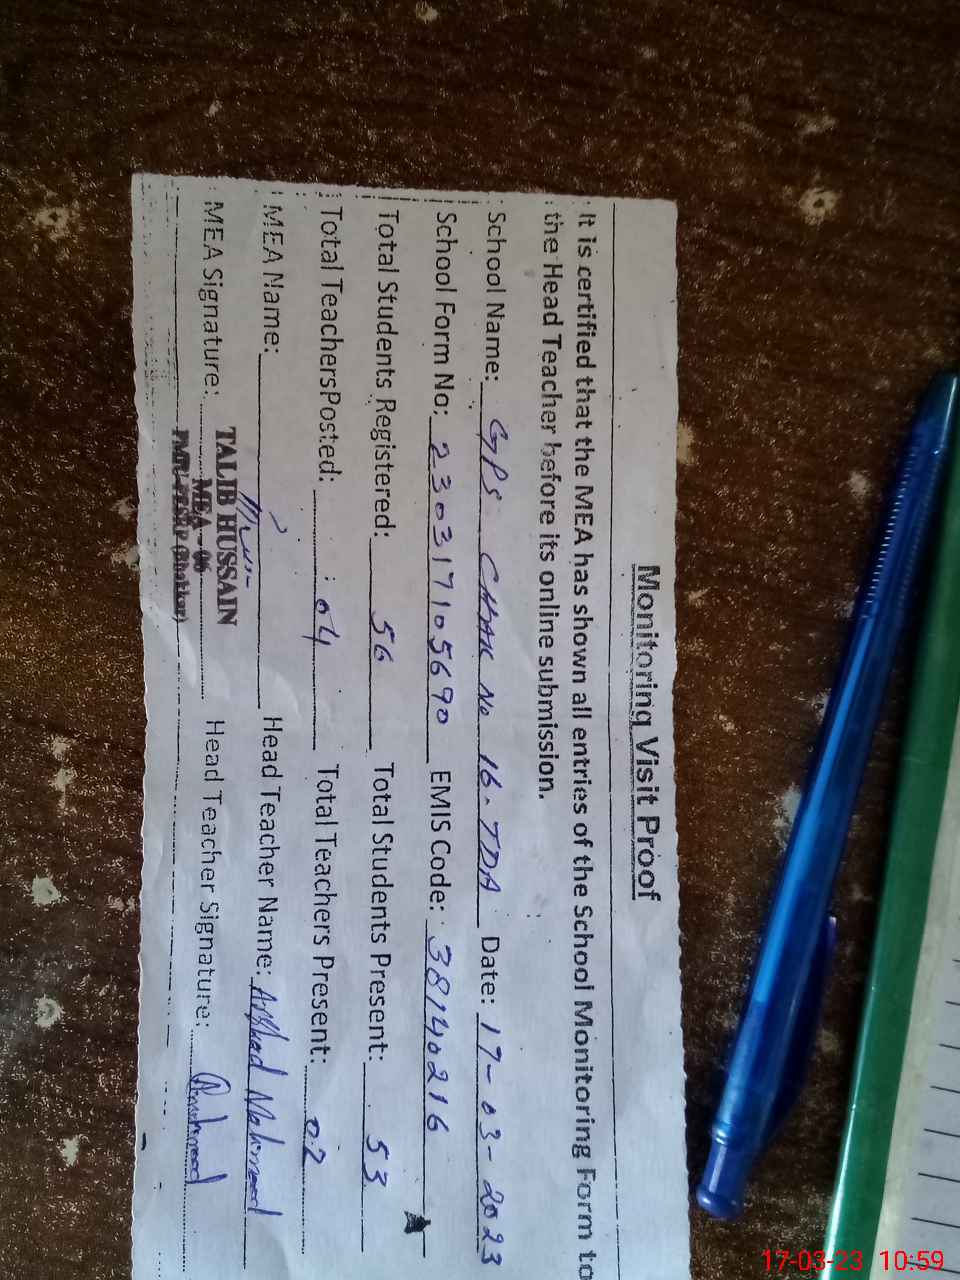 Monitoring Visit Proof
It is certified that the MEA has shown all entries of the School Monitoring Form to
the Head Teacher before its online submission.
School Name: GPS CHAK No 16-TDA Date: 17-03-2023
School Form No: 230317105690 EMIS Code: 38140216
Total Students Registered: 56 Total Students Present: 53
Total TeachersPosted: 04 Total Teachers Present: 02
MEA Name: Head Teacher Name: Arshad Mahmood
MEA Signature: Head Teacher Signature:
TALIB HUSSAIN
MEA - 06
(Bhakkar)
17-03-23 10:59